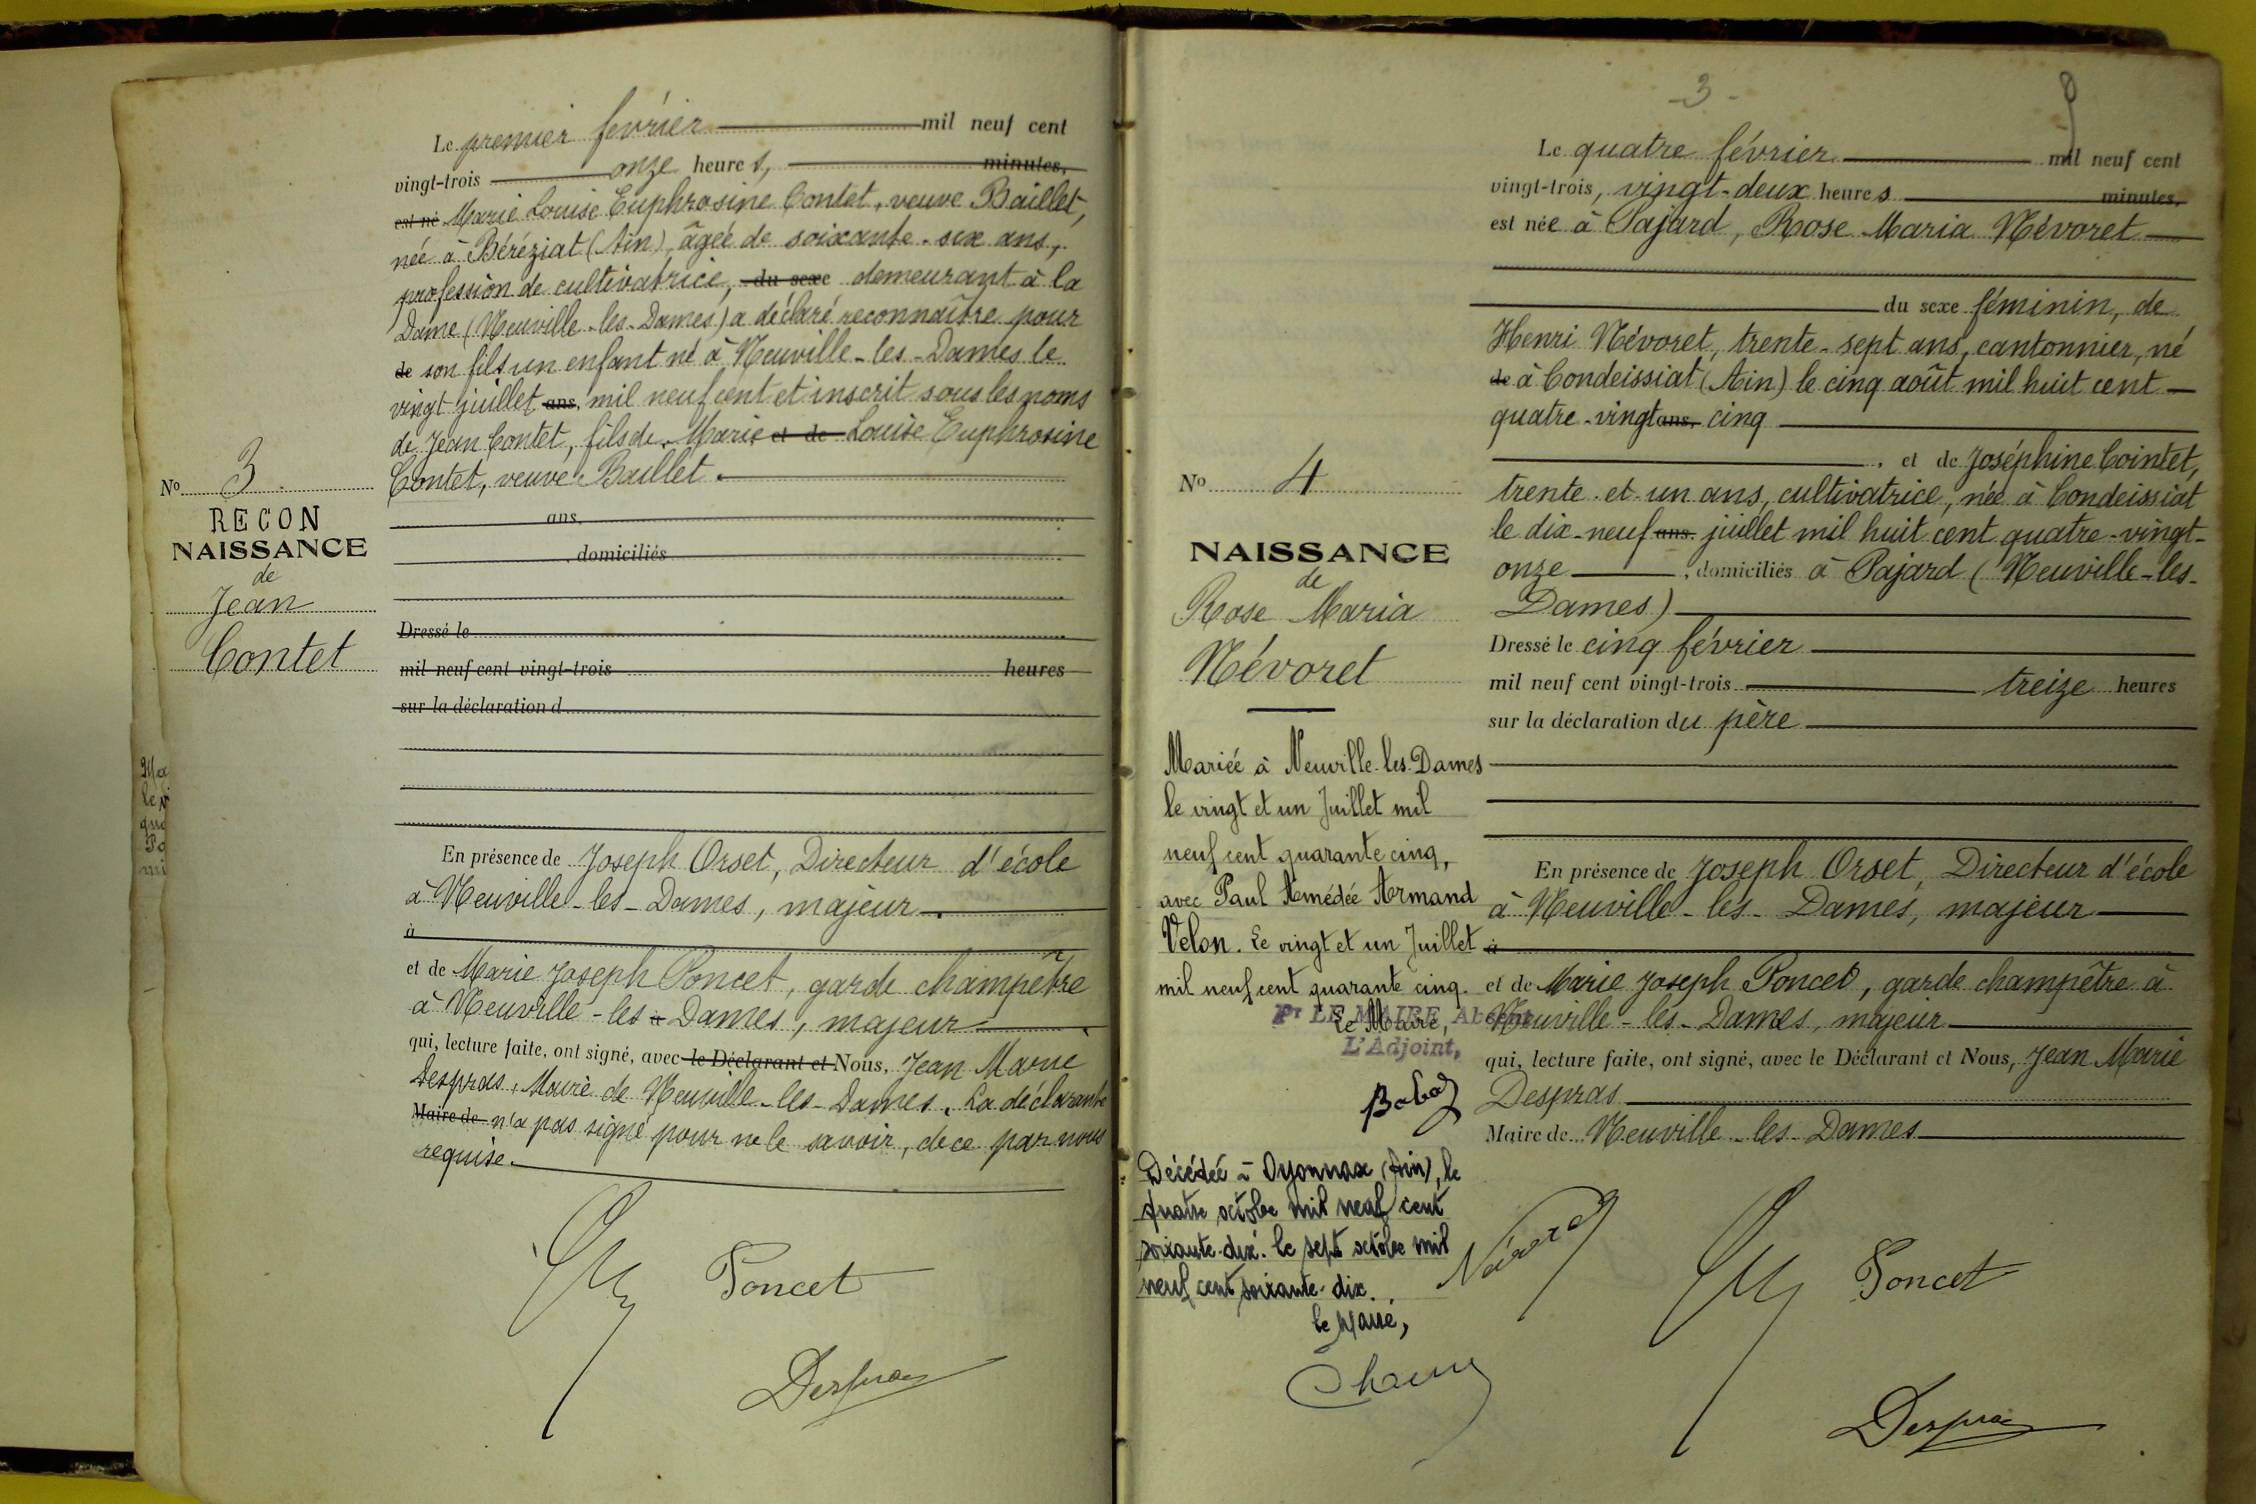 Le premier février mil neuf cent
vingt-trois onze heures, minutes,
est né Marie Louise Euphrosine Contet, veuve Baillet,
née à Béréziat (Ain), âgée de soixante-six ans,
profession de cultivatrice, du sexe demeurant à la
Dame (Neuville-les-Dames) a déclaré reconnaître pour
de son fils un enfant né à Neuville-les-Dames le
vingt juillet ans, mil neuf cent et inscrit sous les noms
de Jean Contet, fils de Marie et de Louise Euphrosine
Contet, veuve Baillet.
ans,
, domiciliés
Dressé le
mil neuf cent vingt-trois heures
sur la déclaration d
No 3
RECON
NAISSANCE
de
Jean
Contet
En présence de Joseph Orset, Directeur d'école
à Neuville-les-Dames, majeur.
à
et de Marie Joseph Poncet, garde champêtre
à Neuville-les à Dames, majeur
qui, lecture faite, ont signé, avec le Déclarant et Nous, Jean Marie
Despras, Maire de Neuville-les-Dames. La déclarante
Maire de n'a pas signé pour ne le savoir, de ce par nous
requise.
Poncet
Despras
-3-
9
Le quatre février mil neuf cent
vingt-trois, vingt-deux heures minutes,
est née à Pajard, Rose Maria Névoret
du sexe féminin, de
Henri Névoret, trente-sept ans, cantonnier, né
de à Condeissiat (Ain) le cinq août mil huit cent
quatre-vingt ans, cinq
, et de Joséphine Cointet,
trente-et-un ans, cultivatrice, née à Condeissiat
le dix-neuf ans, juillet mil huit cent quatre-vingt-
onze , domiciliés à Pajard (Neuville-les-
Dames)
Dressé le cinq février
mil neuf cent vingt-trois treize heures
sur la déclaration du père
No 4
NAISSANCE
de
Rose Maria
Névoret
Mariée à Neuville-les-Dames
le vingt et un Juillet mil
neuf cent quarante cinq,
avec Paul Amédée Armand
Velon. Le vingt et un Juillet
mil neuf cent quarante cinq.
Le Maire,
Pr LE MAIRE Absent
L'Adjoint,
Décédée à Oyonnax (Ain), le
quatre octobre mil neuf cent
soixante-dix. le sept octobre mil
neuf cent soixante-dix.
le Maire,
En présence de Joseph Orset, Directeur d'école
à Neuville-les-Dames, majeur
à
et de Marie Joseph Poncet, garde champêtre à
Neuville-les-Dames, majeur
qui, lecture faite, ont signé, avec le Déclarant et Nous, Jean Marie
Despras
Maire de Neuville-les-Dames
Névoret
Poncet
Despras